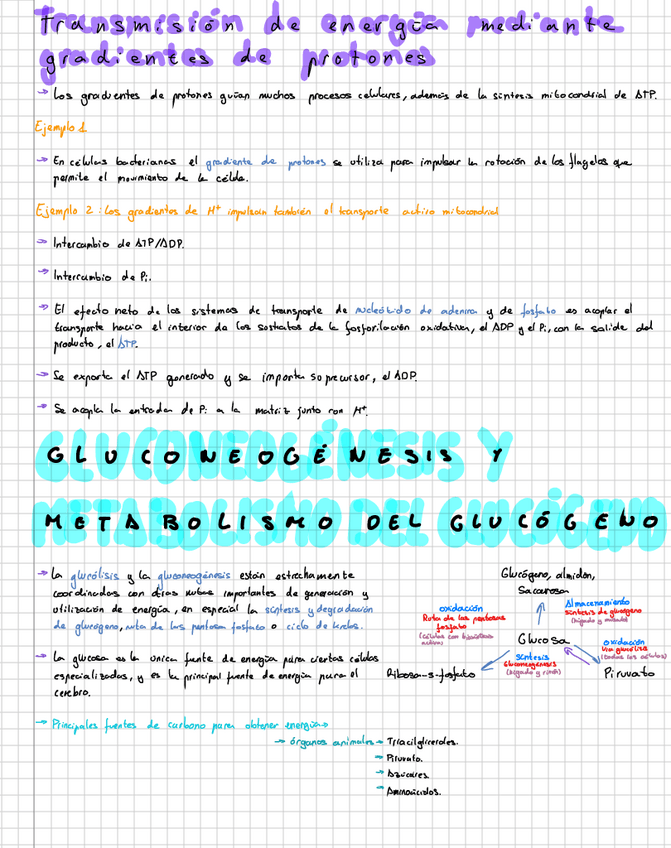 Transmisión de energía mediante
gradientes de protones
→ Los gradientes de protones guían muchos procesos celulares, además de la síntesis mitocondrial de ATP.
Ejemplo 1.
→ En células bacterianas el gradiente de protones se utiliza para impulsar la rotación de los flagelos que
permite el movimiento de la célda.
Ejemplo 2: Los gradientes de H+ impulsan también el transporte activo mitocondrial
→ Intercambio de ATP/ADP.
→ Intercambio de Pi.
→ El efecto neto de los sistemas de transporte de nucleótido de adenina y de fosfato es acoplar el
transporte hacia el interior de los sustratos de la fosforilación oxidativa, el ADP y el Pi, con la salida del
producto, el ATP.
→ Se exporta el ATP generado y se importa su precursor, el ADP.
→ Se acopla la entrada de Pi a la matriz junto con H+.
GLUCONEOGÉNESIS Y
METABOLISMO DEL GLUCÓGENO
→ La glucólisis y la gluconeogénesis están estrechamente
coordinadas con otras rutas importantes de generación y
utilización de energía, en especial la síntesis y degradación
de glucógeno, ruta de las pentosa fosfato o ciclo de krebs.
→ La glucosa es la única fuente de energía para ciertas células
especializadas, y es la principal fuente de energía para el
cerebro.
Glucógeno, almidón,
Sacarosa
Almacenamiento
síntesis de glucógeno
(hígado y músculo)
oxidación
Ruta de las pentosas
fosfato
(células con biosíntesis
activa)
Glucosa
oxidación
Vía glucólisis
(todas las células)
síntesis
Gluconeogénesis
(hígado y riñón)
Ribosa-5-fosfato
Piruvato
→ Principales fuentes de carbono para obtener energía→
→ órganos animales → Triacilgliceroles.
→ Piruvato.
→ Azúcares.
→ Aminoácidos.